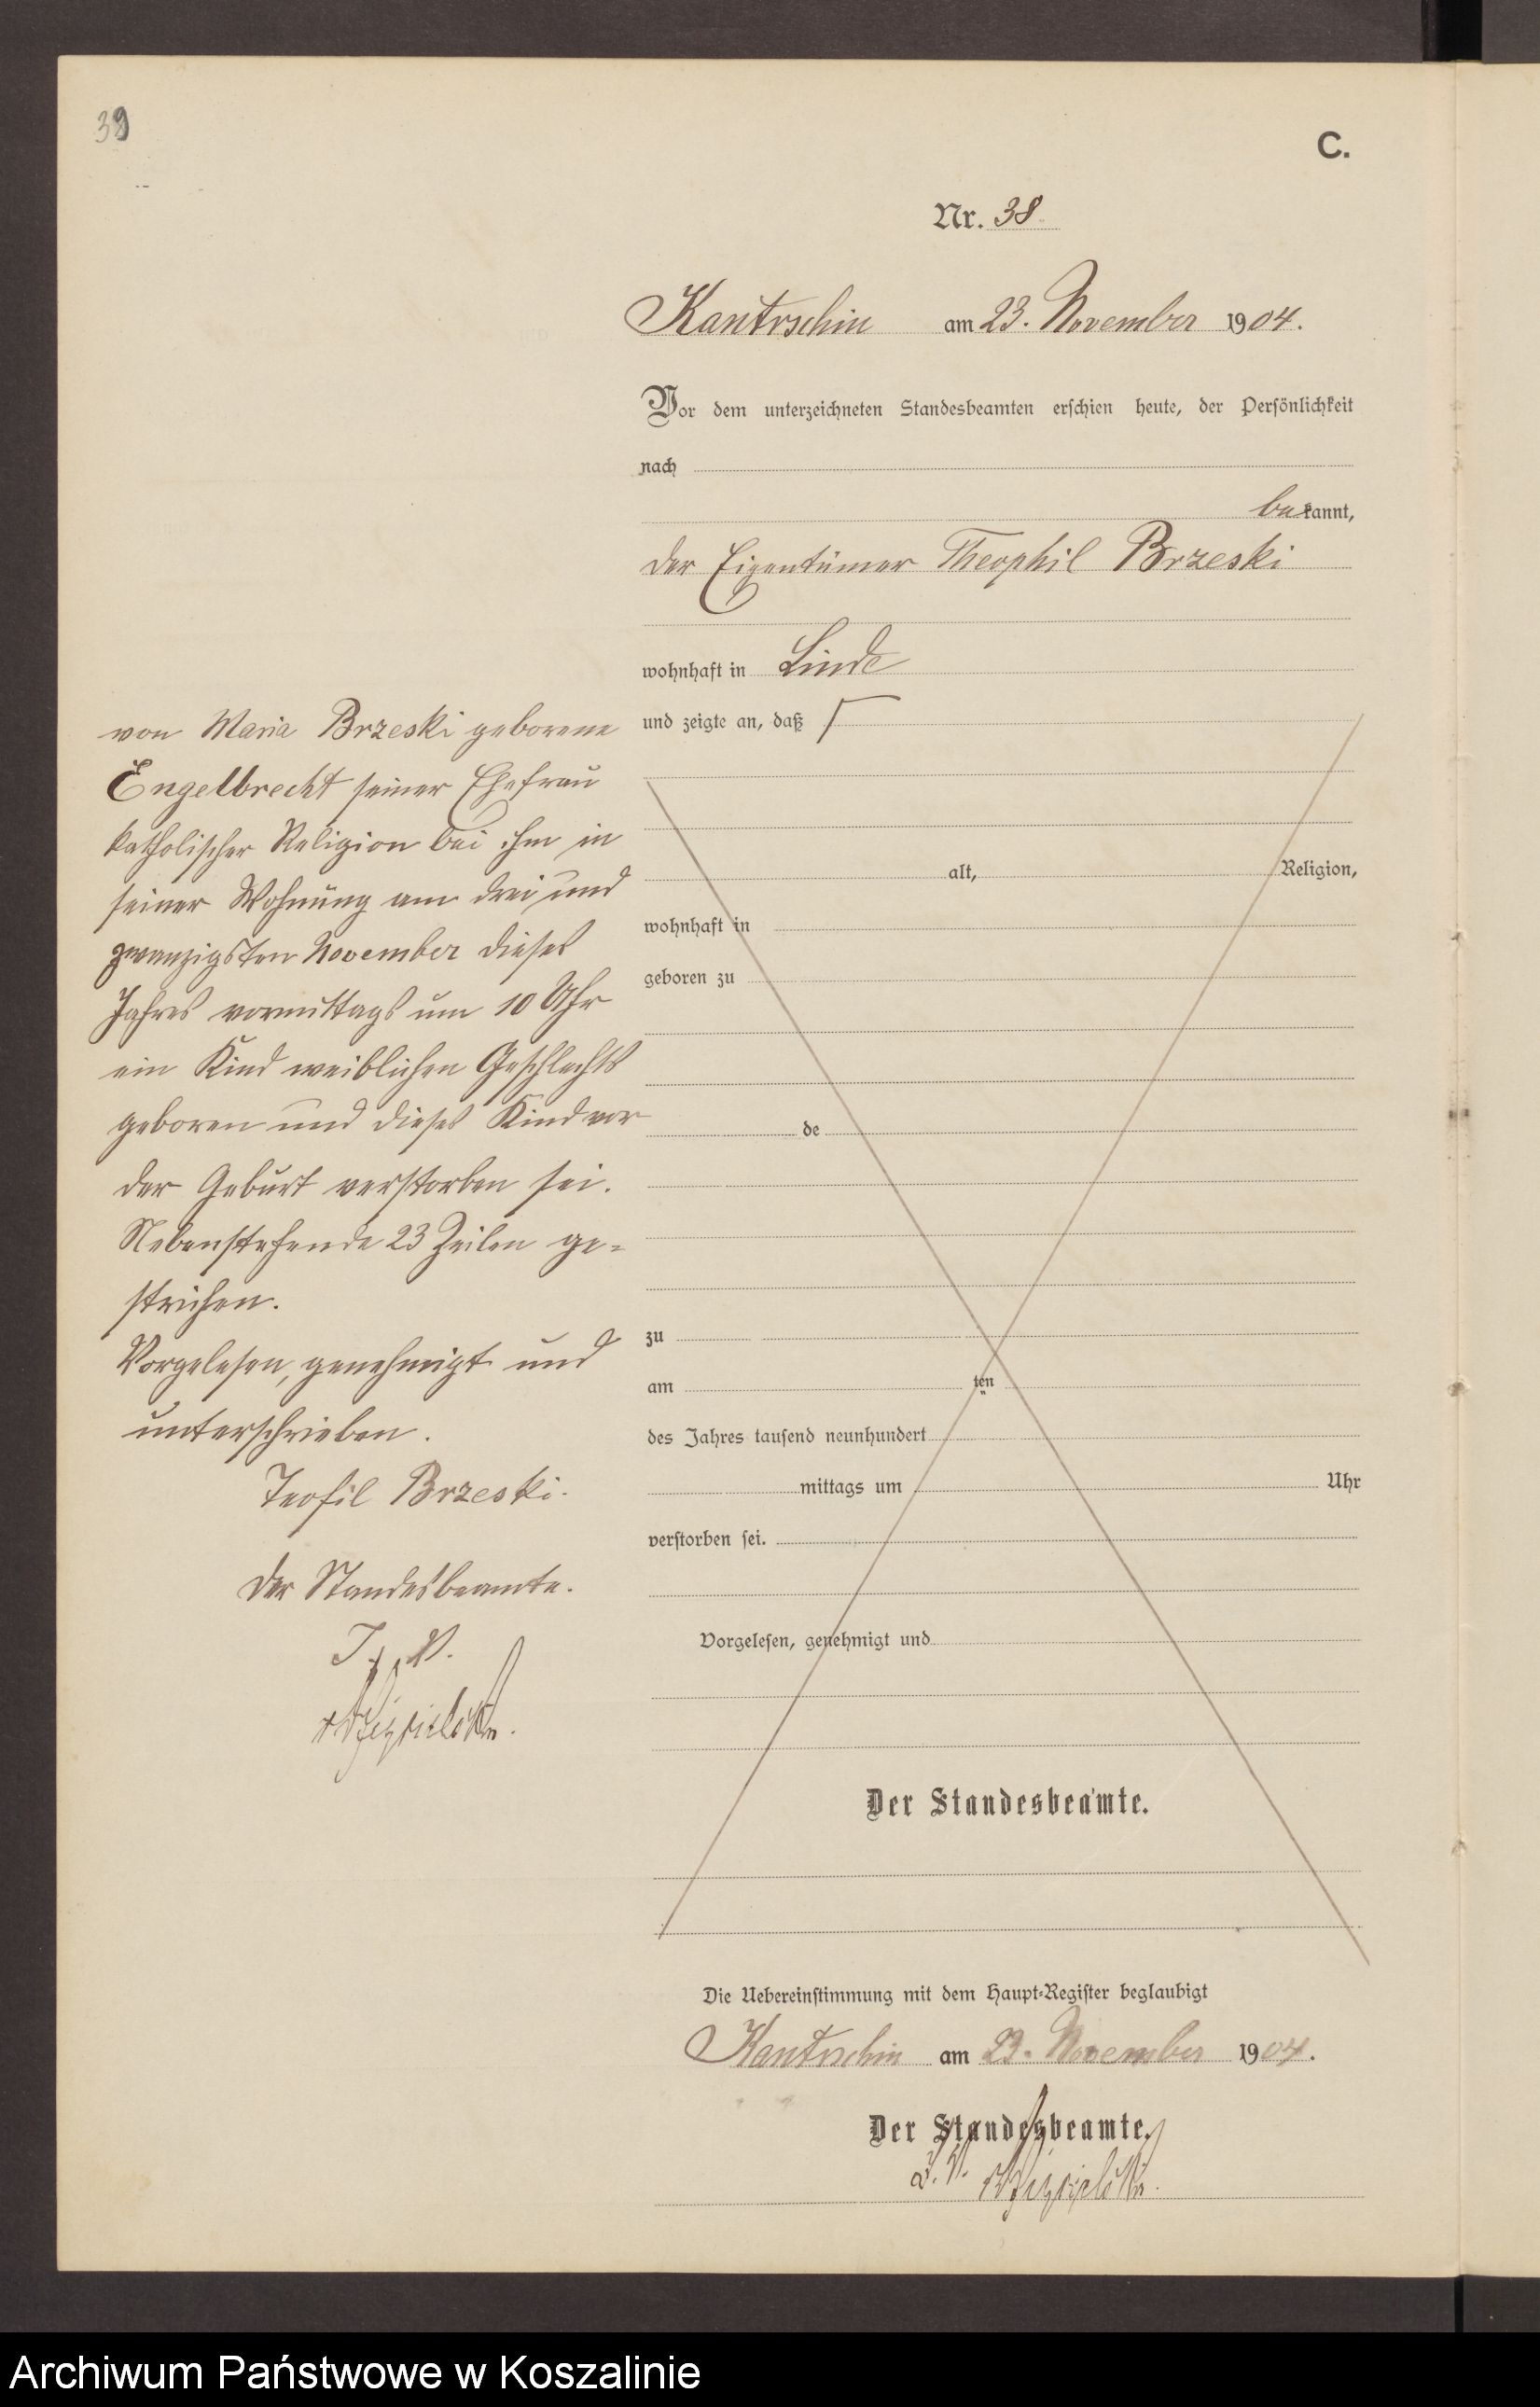 39
C.
Nr. 38
Kantrschin am 23. November 1904.
Vor dem unterzeichneten Standesbeamten erschien heute, der Persönlichkeit
nach
bekannt,
der Eigentümer Theophil Brzeski
wohnhaft in Linde
und zeigte an, daß
von Maria Brzeski geborene
Engelbrecht seiner Ehefrau
katholischer Religion bei ihm in
seiner Wohnung am drei und
zwanzigsten November dieses
Jahres vormittags um 10 Uhr
ein Kind weiblichen Geschlechts
geboren und dieses Kind vor
der Geburt verstorben sei.
Nebenstehende 23 Zeilen ge=
strichen.
Vorgelesen, genehmigt und
unterschrieben.
Teofil Brzeski.
Der Standesbeamte.
I. V.
alt, Religion,
wohnhaft in
geboren zu
de
zu
am ten
des Jahres tausend neunhundert
mittags um Uhr
verstorben sei.
Vorgelesen, genehmigt und
Der Standesbeamte.
Die Uebereinstimmung mit dem Haupt-Register beglaubigt
Kantrschin am 23. November 1904.
Der Standesbeamte.
I. V.
Archiwum Państwowe w Koszalinie